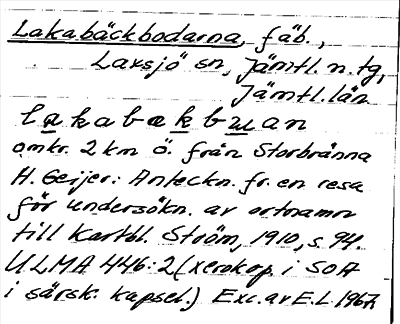 Lakabäckbodarna, fäb.,
Laxsjö sn, Jämtl. n. tg,
Jämtl. län
lakabakbuan
omkr. 2 km ö. från Storbränna
H. Geijer: Anteckn. fr. en resa
för undersökn. av ortnamn
till Kartbl. Ström, 1910, s. 94.
ULMA 446:2 (xerokop. i SOA
i särsk. kapsel.) Exc. av E.L 1967